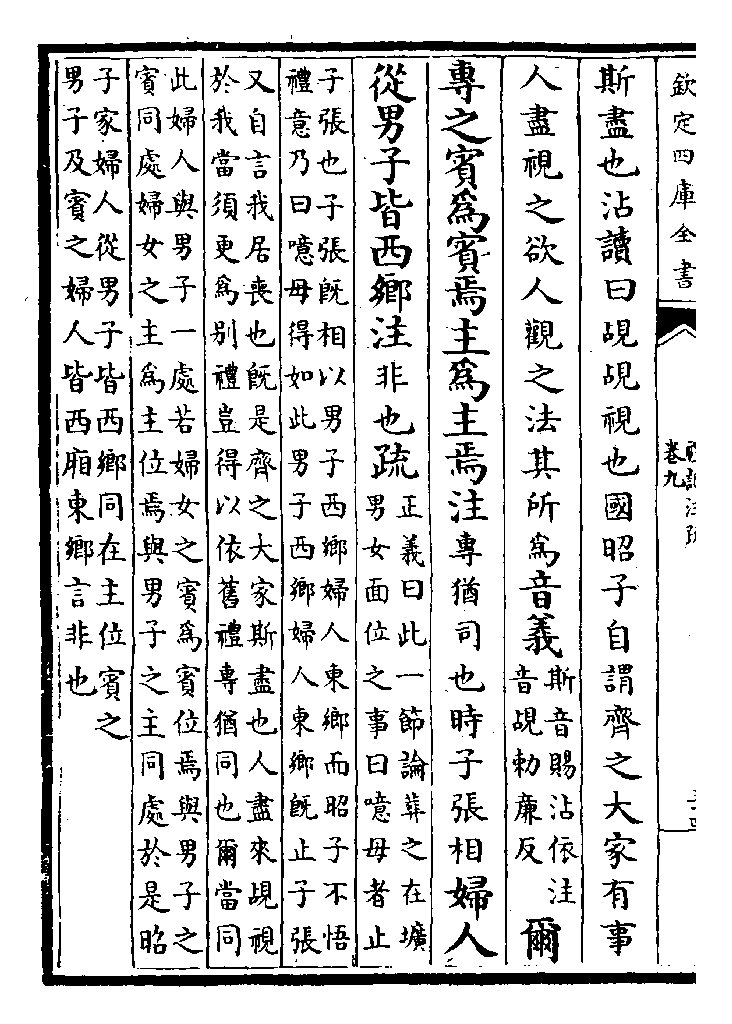 欽定四庫全書
卷九
斯盡也沾讀曰覘覘視也國昭子自謂齊之大家有事
人盡視之欲人觀之法其所為音義斯音賜沾依注
音覘勅廉反爾
專之賓為賓焉主為主焉注專猶司也時子張相婦人
從男子皆西鄉注非也疏正義曰此一節論葬之在壙
男女面位之事曰噫毋者止
子張也子張既相以男子西鄉婦人東鄉而昭子不悟
禮意乃曰噫毋得如此男子西鄉婦人東鄉既止子張
又自言我居喪也既是齊之大家斯盡也人盡來覘視
於我當須更為別禮豈得以依舊禮專猶同也爾當同
此婦人與男子一處若婦女之賓為賓位焉與男子之
賓同處婦女之主為主位焉與男子之主同處於是昭
子家婦人從男子皆西鄉同在主位賓之
男子及賓之婦人皆西廂東鄉言非也